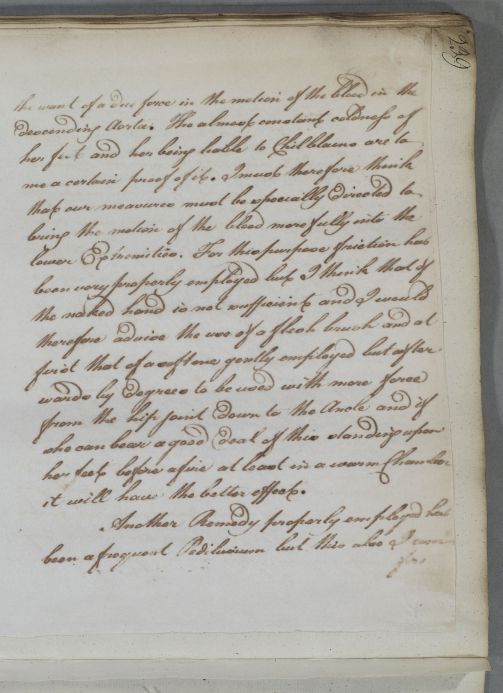 239
the want of a due force in the motion of the blood in the
descending Aorta. The almost constant coldness of
her feet and her being liable to Chilblains are to
me a certain proof of it. I must therefore think
that our measures must be specially Directed to
bring the motion of the blood more fully into the
lower Extremities. For this purpose friction has
been very properly employed but I think that of
the naked hand is not sufficient and I would
therefore advise the use of a flesh brush and at
first that of a soft one gently employed but after
wards by Degrees to be used with more force
from the hip joint Down to the Ancle and if
she can bear a good Deal of this standing upon
her feet before a fire at least in a warm Chamber
it will have the better effect.
Another Remedy properly employed has
been a frequent Pediluvium but this also I